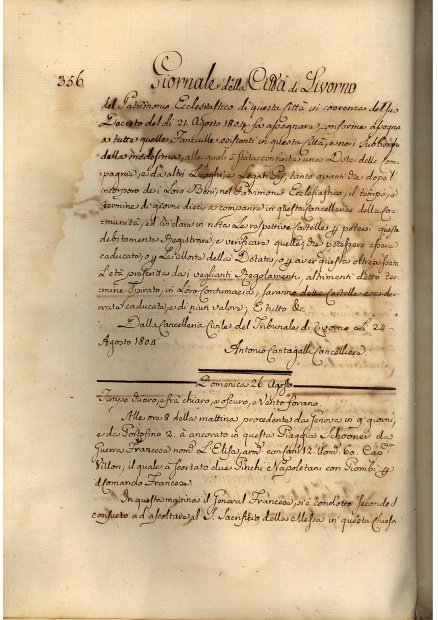 356 Giornale della Città di Livorno
del Patrimonio Ecclesiastico di questa Città in coerenza del suo
Decreto del dì 21. Agosto 1804. fa assegnare, conforme assegna
a tutte quelle Fanciulle esistenti in questa Città, e nei Subborghi
della medesima, alle quali è stata conferita una Dote dalle Com-
pagnie, e da altri Luoghi, e Legati Pij, tanto avanti che dopo l'
incorporo dei Loro Beni nel Patrimonio Ecclesiastico, il tempo, e
termine di giorni dieci a comparire in questa Cancelleria della Co-
munità, ed ivi dare in nota Le respettive Cartelle p potersi queste
debitamente Registrare, e verificare quelle, che potessero essere
caducate, o p La morte della Dotata, o p aver questa oltrepassata
L'età prefissa dai veglianti Regolamenti, altrimenti detto ter-
mine spirato, in Loro Contumacia, saranno dette Cartelle conside-
rate caducate, e di niun valore; E tutto &c
Dalla Cancelleria Civile del Tribunale di Livorno Lì 24
Agosto 1804
Antonio Cantagalli Cancelliere
Domenica 26. Agosto
Tempo vario, e frà chiaro, e oscuro, e Vento forano.
Alle ore 8 della mattina procedente da Genova in 9 giorni,
e da Portofino 2. è ancorato in questa Piaggia Schooner da
Guerra Francese nom.º L'Elisa, arm.º con Can.ⁱ 12. Uom. 60. Cap.º
Villon; il quale à scortato due Pinchi Napoletani con Piombi p
il Comando Francese.
In questa mattina il General Francese, si è condotto secondo il
consueto ad ascoltare il S. Sacrifizio della Messa in questa Chiesa